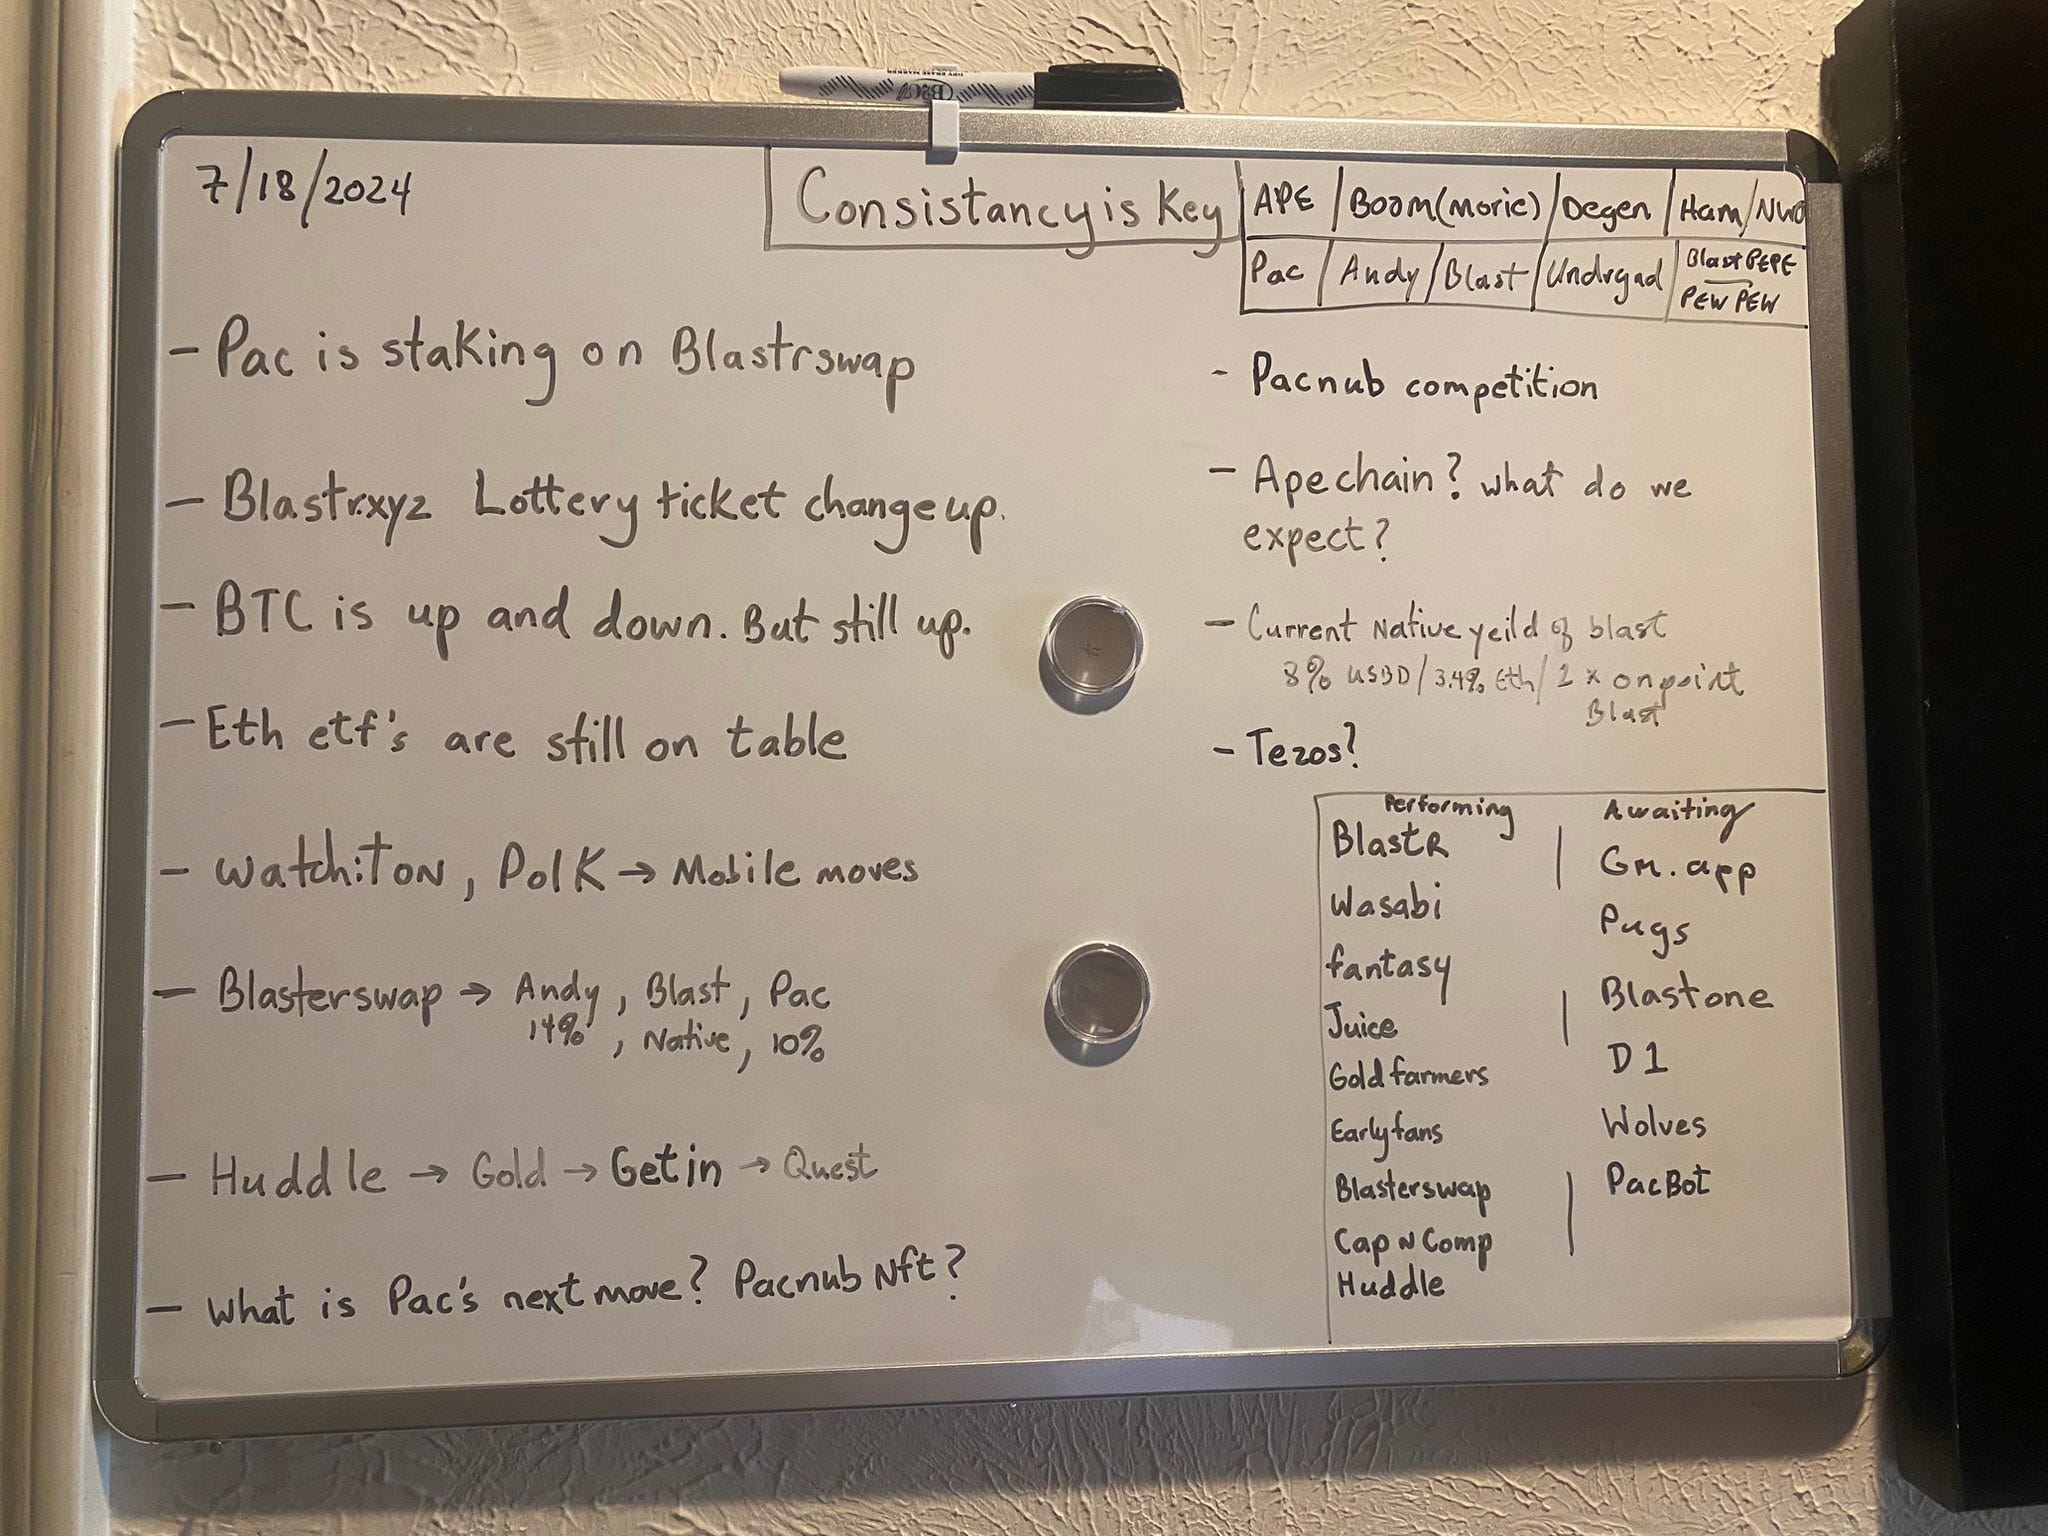 DRY ERASE MARKER
7/18/2024
Consistancy is Key
APE / Boom(morie) / Degen / Ham / NWO
Pac / Andy / Blast / Undrgad / Blast PEPE
PEW PEW
- Pac is staking on Blastrswap
- Blastr.xyz Lottery ticket change up.
- BTC is up and down. But still up.
- Eth etf's are still on table
- Watch: TON, PolK → Mobile moves
- Blasterswap → Andy, Blast, Pac
14%, Native, 10%
- Huddle → Gold → Get in → Quest
- What is Pac's next move? Pacnub Nft?
- Pacnub competition
- Apechain? what do we
expect?
- Current Native yeild of blast
8% USBD / 3.4% Eth / 2 x on point
Blast
- Tezos?
Performing
BlastR
Wasabi
fantasy
Juice
Gold farmers
Earlyfans
Blasterswap
Cap N Comp
Huddle
Awaiting
Gm.app
Pugs
Blastone
D1
Wolves
PacBot